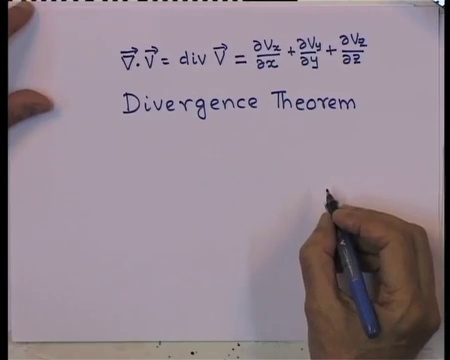 ∇⃗·V⃗ = div V⃗ = ∂Vx/∂x + ∂Vy/∂y + ∂Vz/∂z
Divergence Theorem